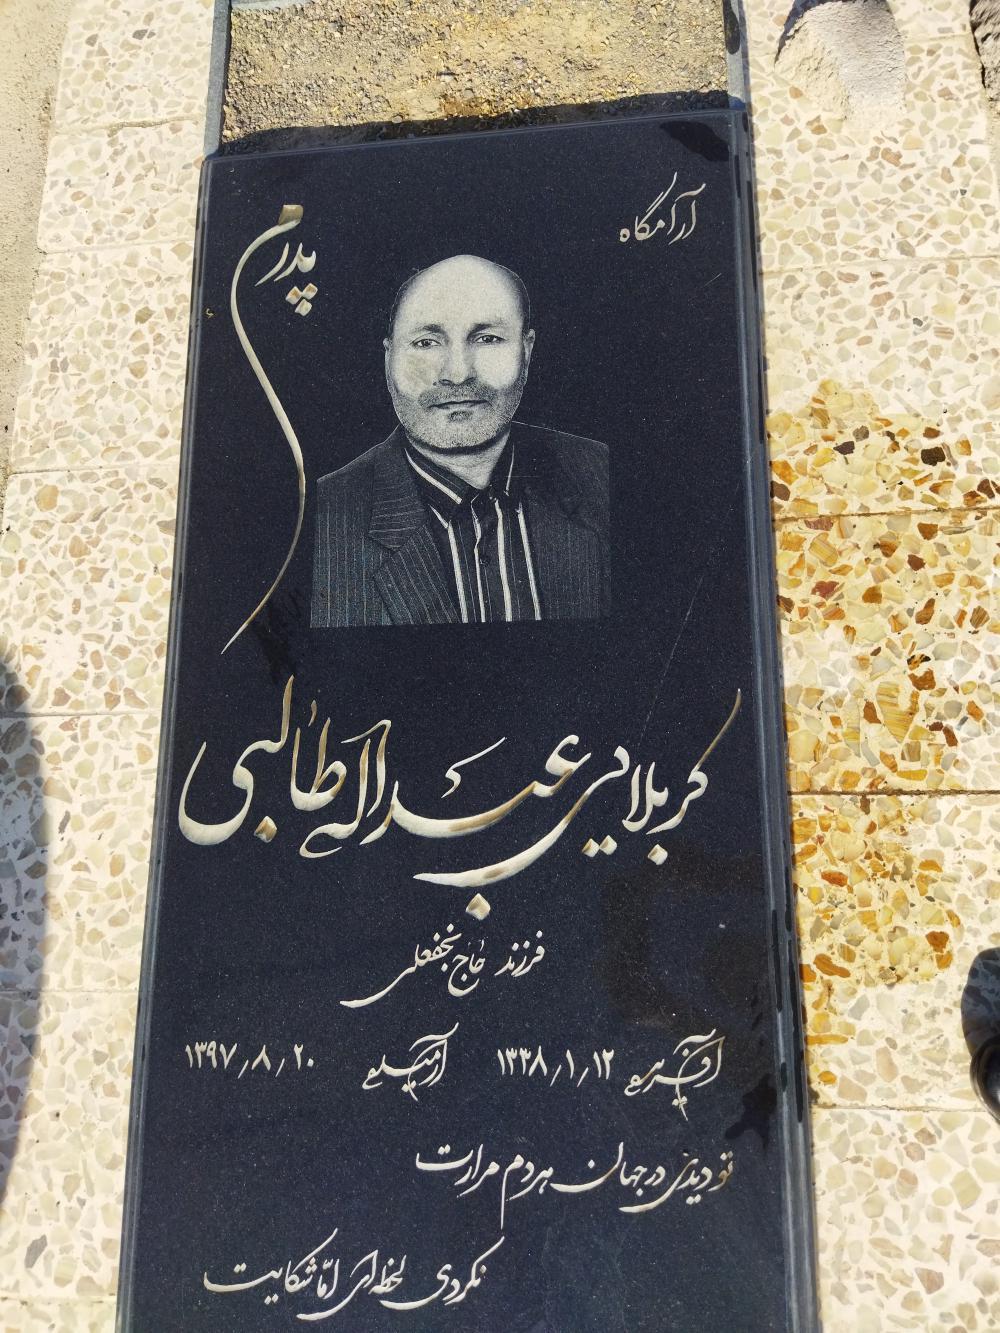 آرامگاه
پدرم
کربلایی عبداله طالبی
فرزند حاج نجفعلی
۱۳۳۸/۱/۱۲ ۱۳۹۷/۸/۲۰
تو دیدی در جهان هر دم مرارت
نکردی لحظه ای امّا شکایت